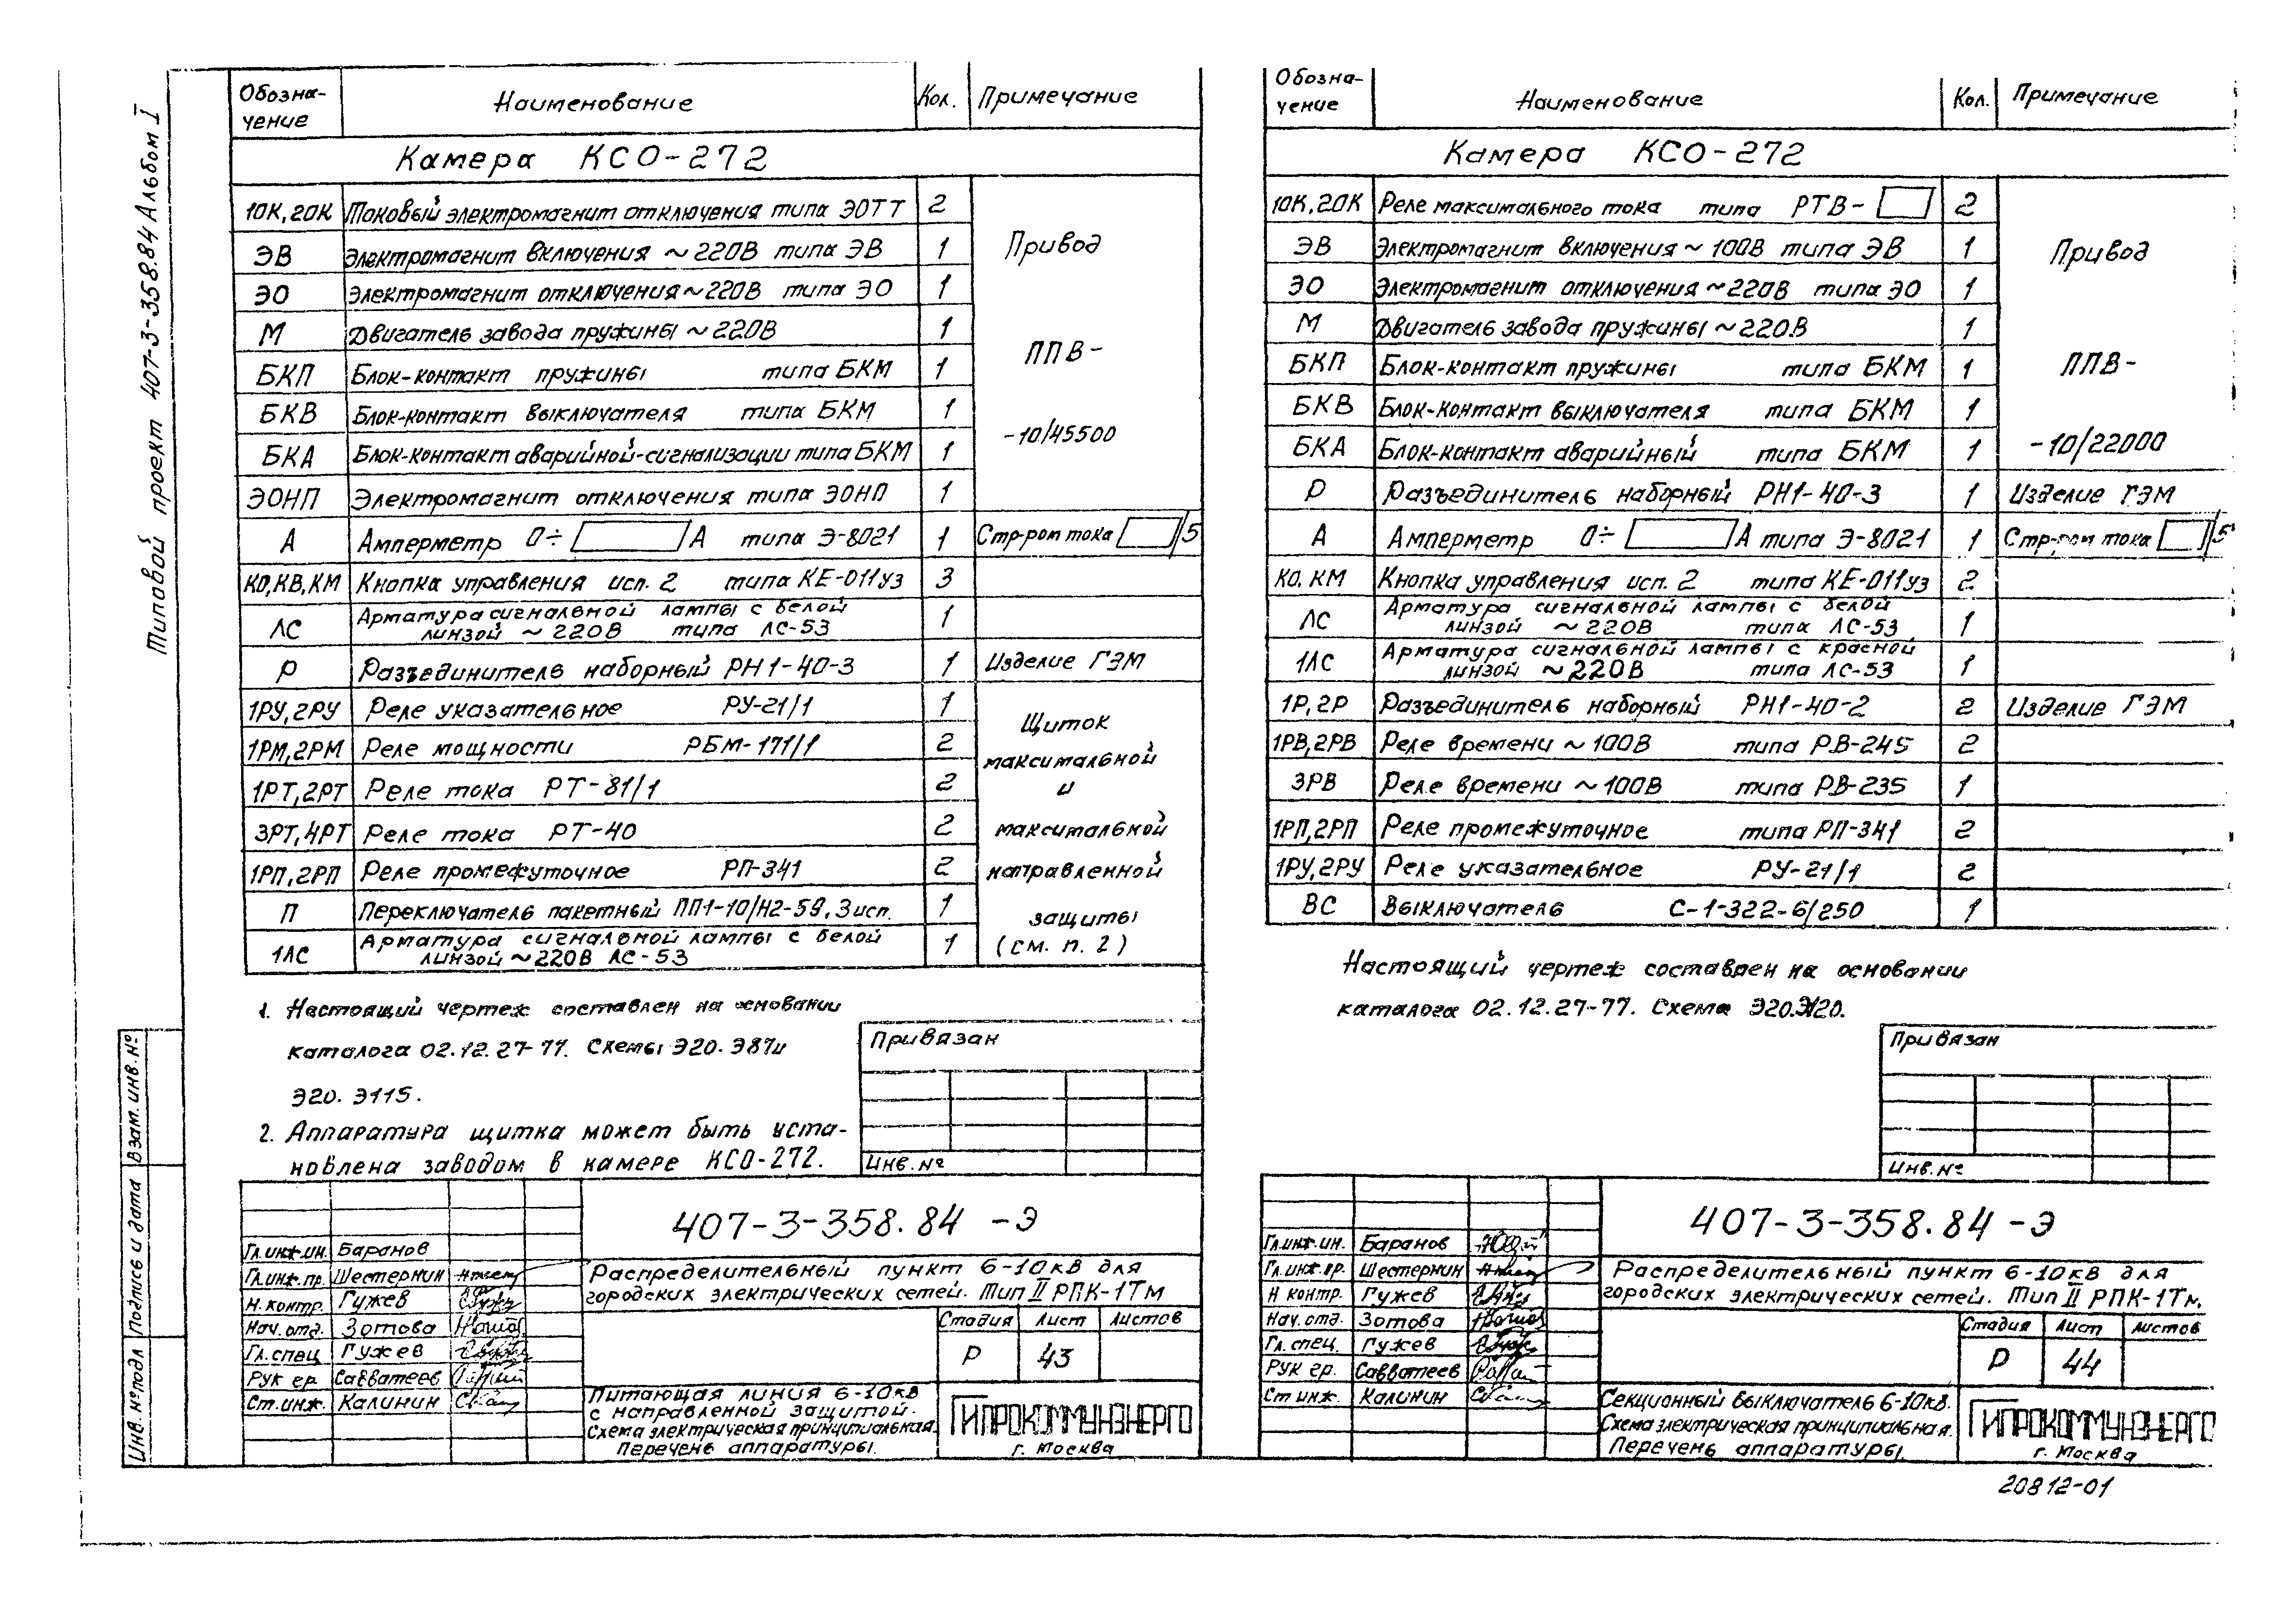 Типовой проект 407-3-358.84 Альбом I
Обозна- Наименование Кол. Примечание
чение
Камера КСО-272
1ОК,2ОК Токовый электромагнит отключения типа ЭОТТ 2
ЭВ Электромагнит включения ~220В типа ЭВ 1 Привод
ЭО Электромагнит отключения ~220В типа ЭО 1
М Двигатель завода пружины ~220В 1
БКП Блок-контакт пружины типа БКМ 1 ППВ-
БКВ Блок-контакт выключателя типа БКМ 1
БКА Блок-контакт аварийной-сигнализации типа БКМ 1 -10/45500
ЭОНП Электромагнит отключения типа ЭОНП 1
А Амперметр 0÷ А типа Э-8021 1 Стр-ром тока /5
КО,КВ,КМ Кнопка управления исп. 2 типа КЕ-011уз 3
ЛС Арматура сигнальной лампы с белой 1
линзой ~220В типа ЛС-53
Р Разъединитель наборный РН1-40-3 1 Изделие ГЭМ
1РУ,2РУ Реле указательное РУ-21/1 1 Щиток
1РМ,2РМ Реле мощности РБМ-171/1 2 максимальной
1РТ,2РТ Реле тока РТ-81/1 2 и
3РТ,4РТ Реле тока РТ-40 2 максимальной
1РП,2РП Реле промежуточное РП-341 2 направленной
П Переключатель пакетный ПП1-10/Н2-59, 3исп. 1 защиты
1ЛС Арматура сигнальной лампы с белой 1 (см. п. 2)
линзой ~220В ЛС-53
1. Настоящий чертеж составлен на основании
каталога 02.12.27-77. Схемы Э20.Э87и
Э20.Э115.
2. Аппаратура щитка может быть уста-
новлена заводом в камере КСО-272.
Привязан
Инв.№
407-3-358.84 -Э
Гл.инж.ин. Баранов
Гл.инж.пр. Шестернин
Н.контр. Гужев
Нач.отд. Зотова
Гл.спец Гужев
Рук гр. Савватеев
Ст.инж. Калинин
Распределительный пункт 6-10кв для
городских электрических сетей. Тип II РПК-1Тм
Стадия Лист Листов
Р 43
Питающая линия 6-10кв
с направленной защитой.
Схема электрическая принципиальная.
Перечень аппаратуры.
ГИПРОКОММУНЭНЕРГО
г. Москва
Взам. инв. №
Подпись и дата
Инв. №подл
Обозна- Наименование Кол. Примечание
чение
Камера КСО-272
1ОК,2ОК Реле максимального тока типа РТВ- 2
ЭВ Электромагнит включения ~100В типа ЭВ 1 Привод
ЭО Электромагнит отключения ~220В типа ЭО 1
М Двигатель завода пружины ~220В 1
БКП Блок-контакт пружины типа БКМ 1 ППВ-
БКВ Блок-контакт выключателя типа БКМ 1
БКА Блок-контакт аварийный типа БКМ 1 -10/22000
Р Разъединитель наборный РН1-40-3 1 Изделие ГЭМ
А Амперметр 0÷ А типа Э-8021 1 Стр-ром тока /5
КО, КМ Кнопка управления исп. 2 типа КЕ-011уз 2
ЛС Арматура сигнальной лампы с белой 1
линзой ~220В типа ЛС-53
1ЛС Арматура сигнальной лампы с красной 1
линзой ~220В типа ЛС-53
1Р,2Р Разъединитель наборный РН1-40-2 2 Изделие ГЭМ
1РВ,2РВ Реле времени ~100В типа РВ-245 2
3РВ Реле времени ~100В типа РВ-235 1
1РП,2РП Реле промежуточное типа РП-341 2
1РУ,2РУ Реле указательное РУ-21/1 2
ВС Выключатель С-1-322-6/250 1
Настоящий чертеж составлен на основании
каталога 02.12.27-77. Схема
Привязан
Инв.№
407-3-358.84 -Э
Гл.инж.ин. Баранов
Гл.инж.пр. Шестернин
Н контр. Гужев
Нач.отд. Зотова
Гл.спец. Гужев
Рук гр. Савватеев
Ст инж. Калинин
Распределительный пункт 6-10кв для
городских электрических сетей. Тип II РПК-1Тм.
Стадия Лист Листов
Р 44
Секционный выключатель 6-10кв.
Схема электрическая принципиальная.
Перечень аппаратуры.
ГИПРОКОММУНЭНЕРГО
г. Москва
20812-01